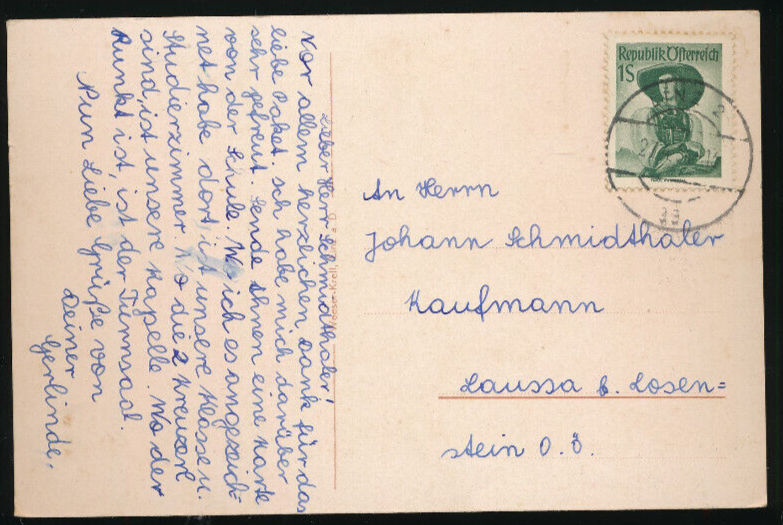 Lieber Herr Schmidthaler!
Vor allem herzlichen Dank für das
liebe Paket. Ich habe mich darüber
sehr gefreut. Sende Ihnen eine Karte
von der Schule. Wo ich es angezeich=
net habe dort ist unsere Klasse u.
Studierzimmer. Wo die 2 Kreuze
sind, ist unsere Kapelle. Wo der
Punkt ist, ist der Turnsaal.
Nun Liebe Grüße von
Deiner
Gerlinde.
Republik Österreich
1S
2
An Herrn
Johann Schmidthaler
Kaufmann
Laussa b. Losen=
stein O.Ö.